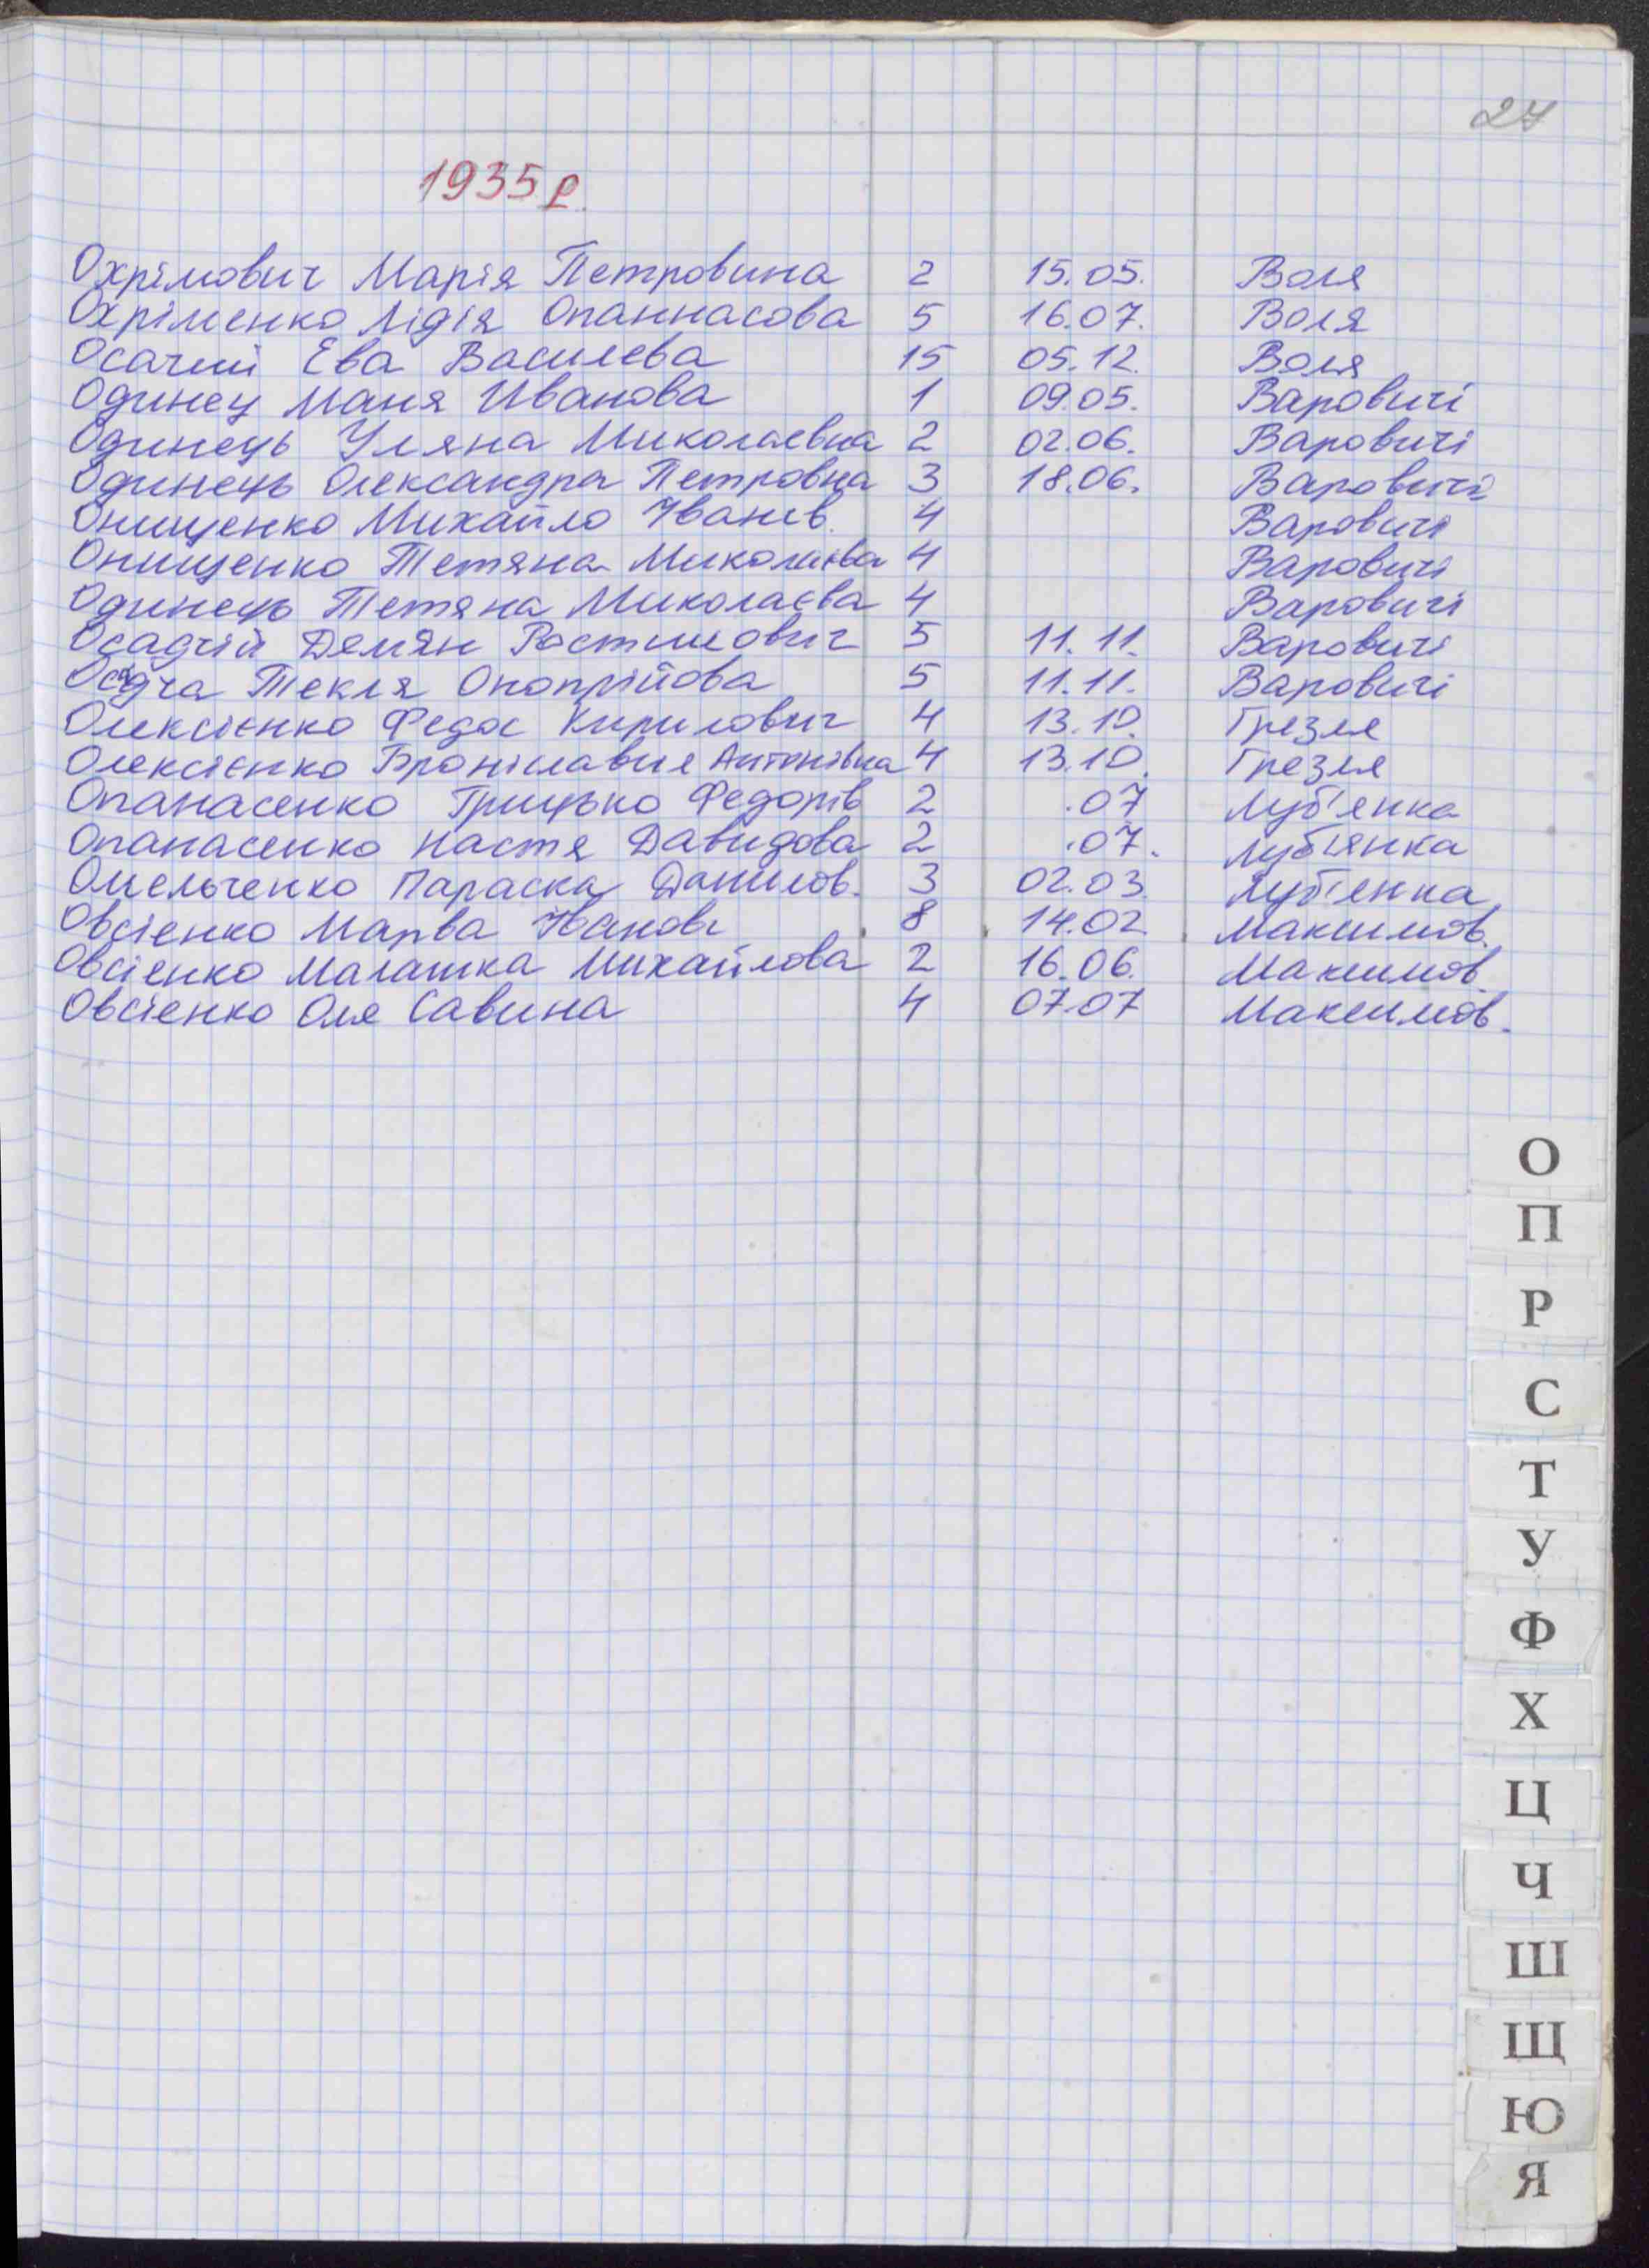 27
1935 р.
Охрімович Марія Петровина 2 15.05. Воля
Охріменко Лідія Опаннасова 5 16.07. Воля
Осачий Ева Василева 15 05.12. Воля
Одинец Маня Иванова 1 09.05. Варовичі
Одинець Уляна Миколаевна 2 02.06. Варовичі
Одинець Олександра Петровна 3 18.06. Варовичі
Онищенко Михайло Іванів. 4 Варовичі
Онищенко Тетяна Миколаєва 4 Варовичі
Одинець Тетяна Миколаєва 4 Варовичі
Осадчій Демян 5 11.11. Варовичі
Текля 5 11.11. Варовичі
Олексієнко Федос Кирилович 4 13.10. Грезля
Олексієнко Броніславия Антонівна 4 13.10. Грезля
Опанасенко Грицько Федорів 2 .07 Луб'енка
Опанасенко Настя Давидова 2 .07. Луб'янка
Омельченко Параска Данилов. 3 02.03. Луб'енка
Овсіенко Марва Іванов 8 14.02. Максимов.
Овсіенко Малашка Михайлова 2 16.06. Максимов.
Овсіенко Оля Савина 4 07.07 Максимов.
О
П
Р
С
Т
У
Ф
Х
Ц
Ч
Ш
Щ
Ю
Я